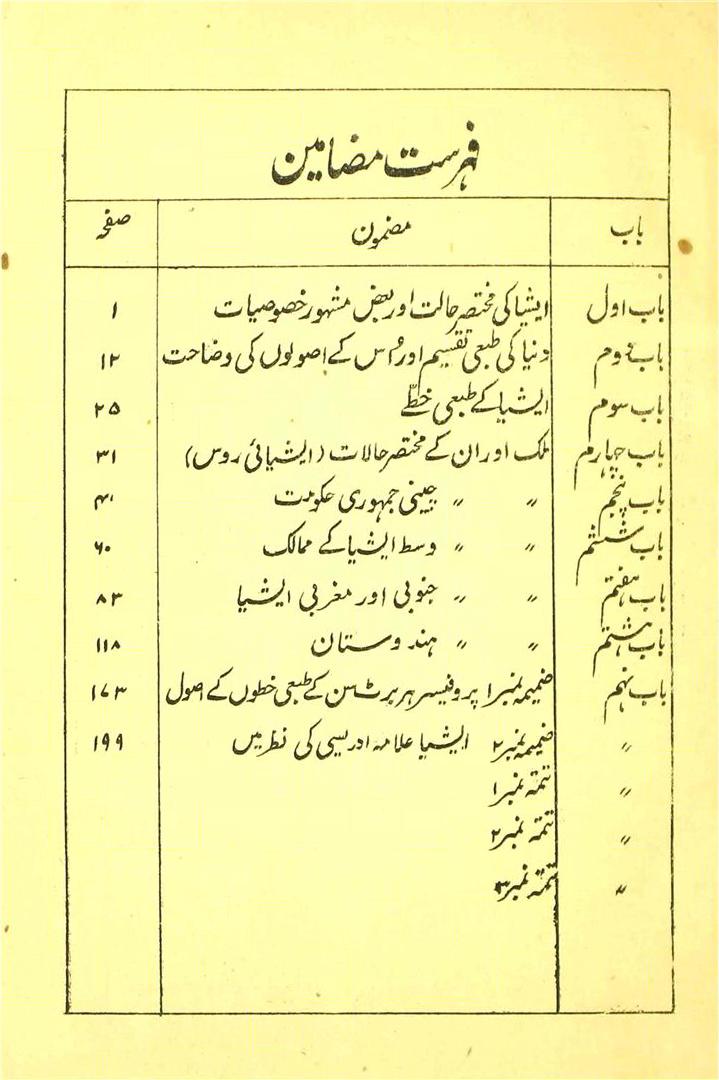 فہرست مضامین
باب مضمون صفحہ
باب اول ایشیا کی مختصر حالت اور بعض مشہور خصوصیات ۱
باب دوم دنیا کی طبعی تقسیم اور اُس کے اصولوں کی وضاحت ۱۲
باب سوم ایشیا کے طبعی خطّے ۲۵
باب چہارم ملک اور ان کے مختصر حالات (ایشیائی روس) ۳۱
باب پنجم " " چینی جمہوری حکومت ۴۱
باب ششتم " " وسط ایشیا کے ممالک ۶۰
باب ہفتم " " جنوبی اور مغربی ایشیا ۸۳
باب ہشتم " " ہندوستان ۱۱۸
باب نہم ضمیمہ نمبر ۱ پروفیسر ہربرٹسن کے طبعی خطوں کے اصول ۱۷۳
" ضمیمہ نمبر ۲ ایشیا علامہ ادریسی کی نظر میں ۱۹۹
" تتمۃ نمبر ۱
" تتمۃ نمبر ۲
" تتمۃ نمبر ۳